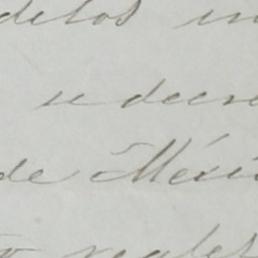 de los in
se decre
de Méxi
reales